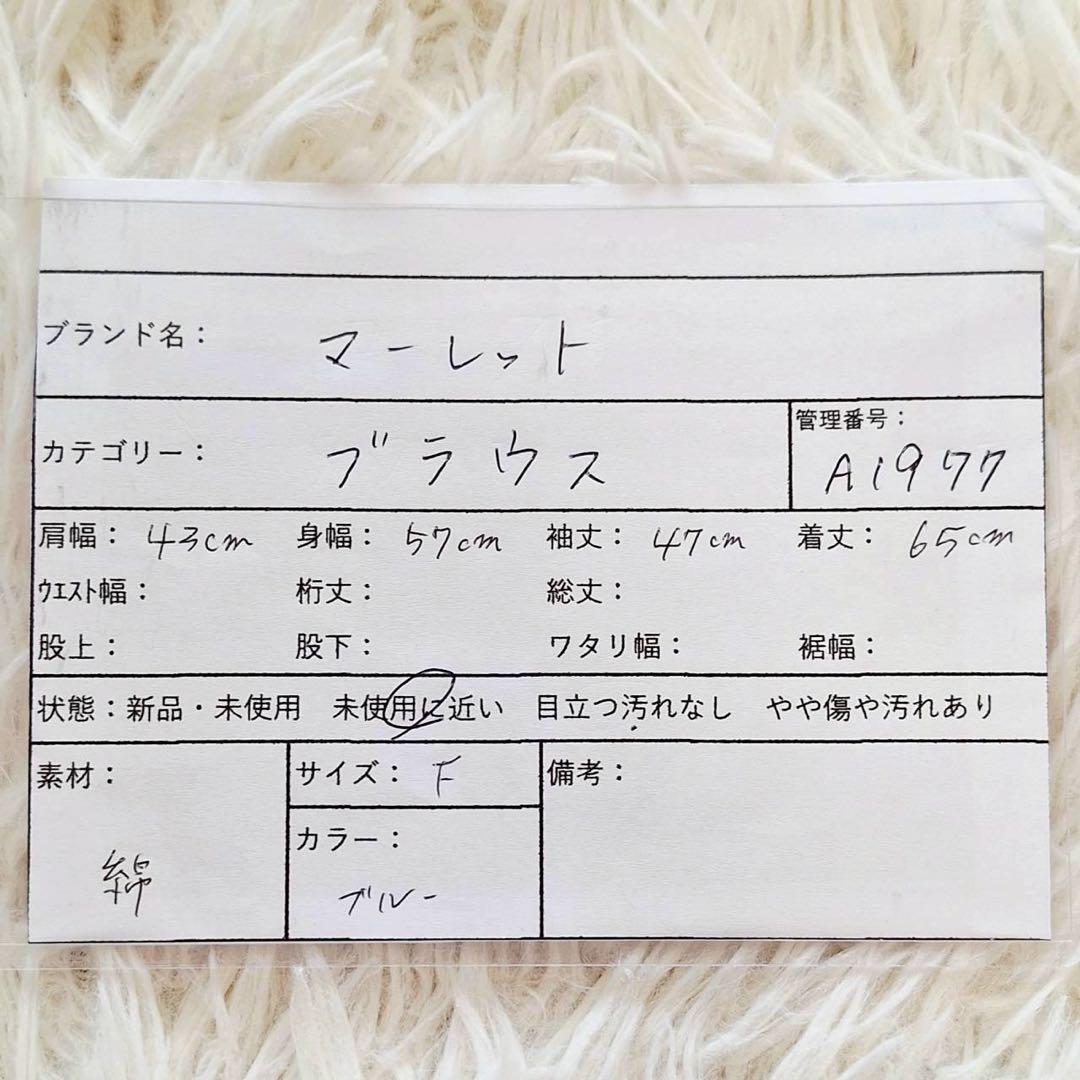 ブランド名： マーレット
カテゴリー： ブラウス
管理番号：
A1977
肩幅： 43cm 身幅： 57cm 袖丈： 47cm 着丈： 65cm
ｳｴｽﾄ幅： 裄丈： 総丈：
股上： 股下： ワタリ幅： 裾幅：
状態：新品・未使用 未使用に近い 目立つ汚れなし やや傷や汚れあり
素材：
綿
サイズ： F
カラー：
ブルー
備考：